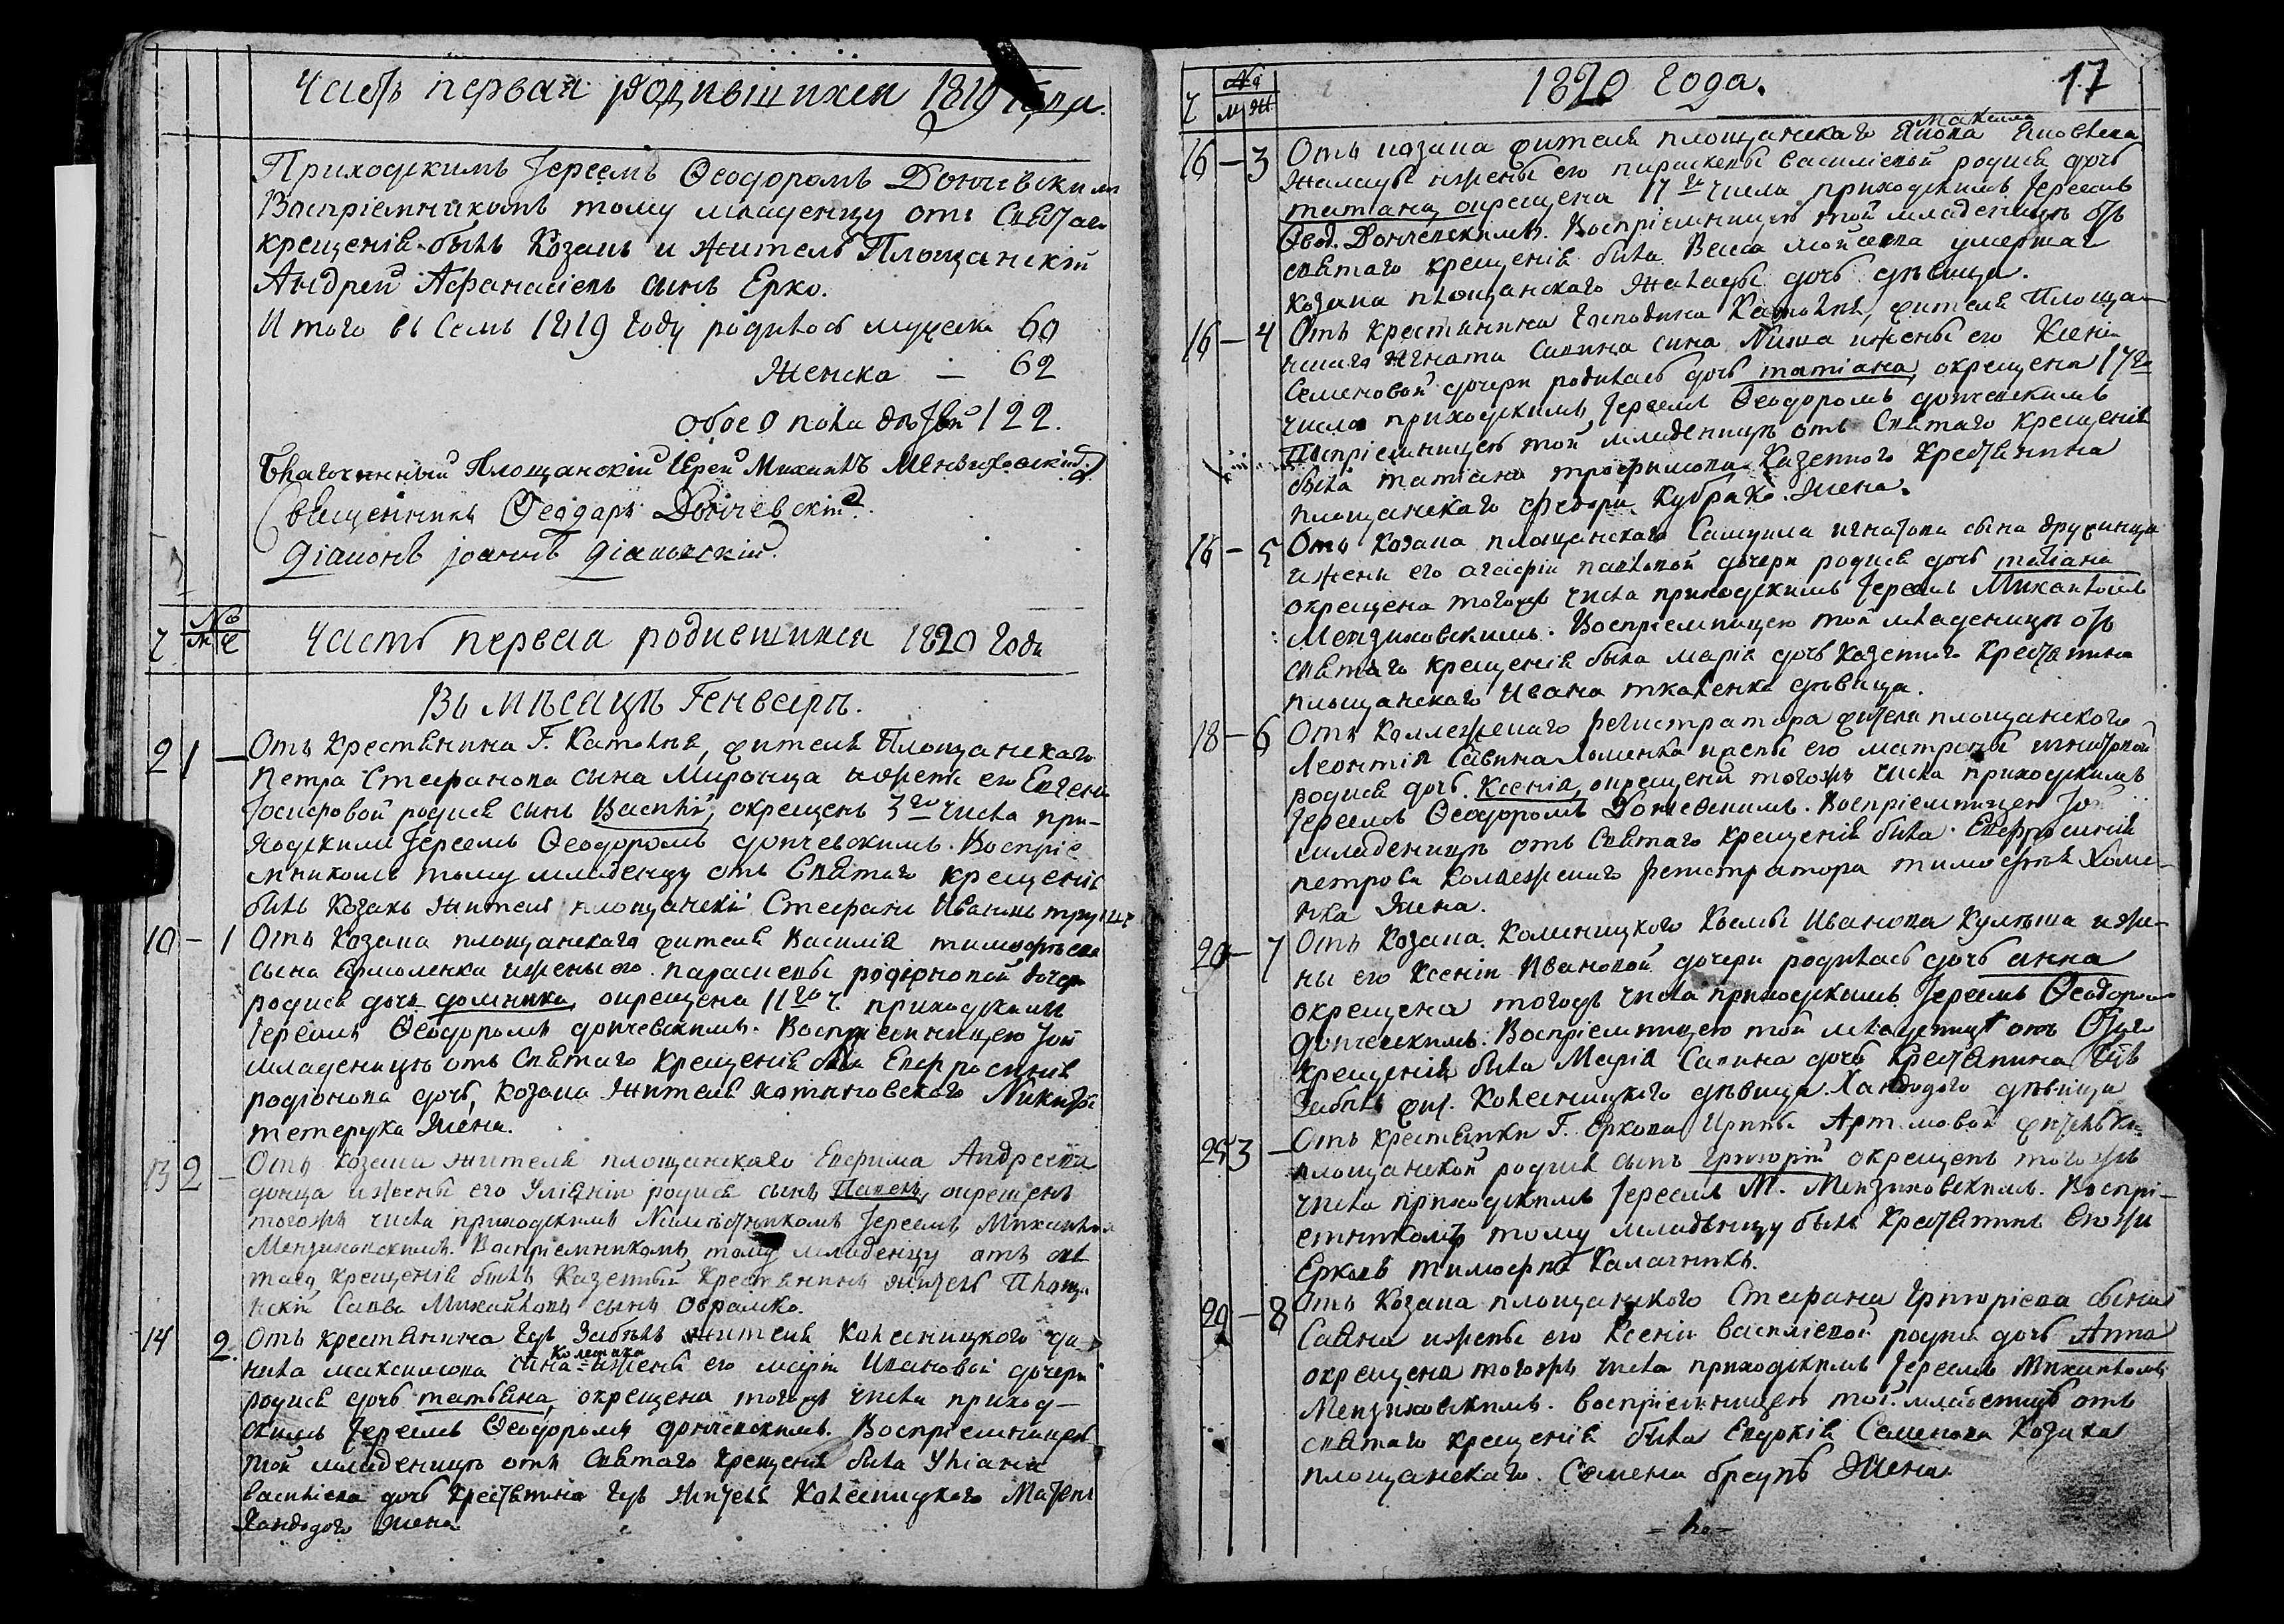 Часть первая родившихся 1819 года.
Приходскимъ Іереемъ Ѳеодоромъ Дончевскимъ
Воспріемникомъ тому младенцу отъ Святаго
крещенія былъ Козакъ и житель Площанскій
Андрей Афанасіевъ сынъ Ерко.
Итого въ семъ 1819 году родилось мужеска 60
Женска — 62
обоего пола 122.
Благочинный Площанскій Іерей Михаилъ Мензиховскій
Священникъ Ѳеодоръ Дончевскій
Діаконъ Іоаннъ
№
Ч М Ж
Часть первая родившихся 1820 года
Въ мѣсяцѣ Генварѣ.
2 1 — Отъ крестянина Г. жителя Площанскаго
Петра Стефанова сина Миронца и жены его Евгеніи
Іосифовой родися сынъ Василій, окрещенъ 3го числа при-
ходскимъ Іереемъ Ѳеодоромъ дончевскимъ. Воспріе
мникомъ тому младенцу отъ Святаго крещенія
былъ Козакъ житель площанскій Стефанъ Ивановъ
10 — 1 Отъ Козака площанскаго жителя Василія тимофѣева
сына Ермоленка и жены его параскевы родіоновой дочери
родися дочь домникія, окрещена 11го ч. приходскимъ
Іереемъ Ѳеодоромъ дончевскимъ. Воспріемницею той
младеницѣ отъ Святаго крещенія была Евфросинія
родіонова дочь, козака жителя Никиты
тетерука жена.
13 2 — Отъ козака жителя площанскаго Ефрема Андреева
донца и жены его Уліяніи родися сынъ Павелъ, окрещенъ
тогожъ числа приходскимъ Намѣстникомъ Іереемъ Михаиломъ
Мензиховскимъ. Воспріемникомъ тому младенцу отъ свя
таго крещенія былъ Казенный крестянинъ житель Площан
скій Савва Михайловъ сынъ Обрамко.
14 2. Отъ крестянина Гдъ Забѣлъ жителя Колесницкого да
нила максимова сина Колесника и жены его маріи Ивановой дочери
родися дочь татьяна, окрещена тогожъ числа приход—
скимъ Іереемъ Ѳеодоромъ дончевскимъ. Воспріемницею
той младеницѣ отъ Святаго крещенія была Уліана
василіева дочь крестянина Гдъ жителя Колесницкого Матвѣя
Хандогого жена
№
Ч М Ж
1820 Года. 17
16 — 3 Отъ козака жителя площанскаго Якова Максима Яковлева
Жалацы и жены его параскевы василіевой родися дочь
татіана, окрещена 17го числа приходскимъ Іереемъ
Ѳеод. Дончевскимъ. Воспріемницею той младеницѣ отъ
святаго крещенія была Васса мойсеева умершаго
козака площанскаго Жалацы дочь дѣвица.
16 — 4 Отъ крестянина Господина жителя Площан
скаго Игната Савина сина и жены его Ксеніи
Семеновой дочери родилась дочь татіана, окрещена 17го
числа приходскимъ Іереемъ Ѳеодоромъ дончевскимъ
Воспріемницею той младеницѣ отъ Святаго Крещенія
была татіана трофимова Казенного Крестянина
площанскаго федора Кубрака жена.
16 — 5 Отъ Козака площанскаго Самуила игнатова сына
и жены его агафіи павловой дочери родися дочь татіана
окрещена тогожъ числа приходскимъ Іереемъ Михаиломъ
Мензиховскимъ. Воспріемницею той младеницѣ отъ
святаго крещенія была марія дочь Казенного Крестянина
площанскаго Ивана ткаленка дѣвица.
18 — 6 Отъ Коллежскаго регистратора жителя площанского
Леонтія Савина и жены его матроны игнатовой
родися дочь Ксенія, окрещена тогожъ числа приходскимъ
Іереемъ Ѳеодоромъ Дончевскимъ. Воспріемницею той
младеницѣ отъ Святаго Крещенія была Евфросинія
петрова коллежскаго регистратора тимофѣя Хоме-
нка жена.
20 — 7 Отъ Козака Колесницкого Иванова Кулиша и же-
ны его Ксеніи Ивановой дочери родилась дочь анна
окрещена тогожъ числа приходскимъ Іереемъ Ѳеодоромъ
дончевскимъ. Воспріемницею той младеницѣ отъ Святаго
крещенія была Марія Савина дочь крестянина Гдъ
Забѣлъ жит. Колесницкого дѣвица. Хандогого дѣвица
25 3 — Отъ крестянки Г. Еркова Ирины Артемовой жительки
площанской родися сынъ григорій окрещенъ тогожъ
числа приходскимъ Іереемъ М. Мензиховскимъ. Воспрі-
емникомъ тому младенцу былъ Крестянинъ егожъ
Еркова тимофѣй Калачникъ.
29 — 8 Отъ Козака площанского Стефана григоріева сына
Саяна и жены его Ксеніи василіевой родися дочь Анна
окрещена тогожъ числа приходскимъ Іереемъ Михаиломъ
Мензиховскимъ. воспріемницею той младеницѣ отъ
святаго крещенія была Евдокія Семенова Козака
площанскаго Семена жена.